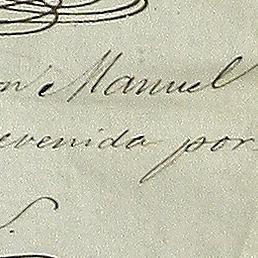 Manuel
evenida por
S.